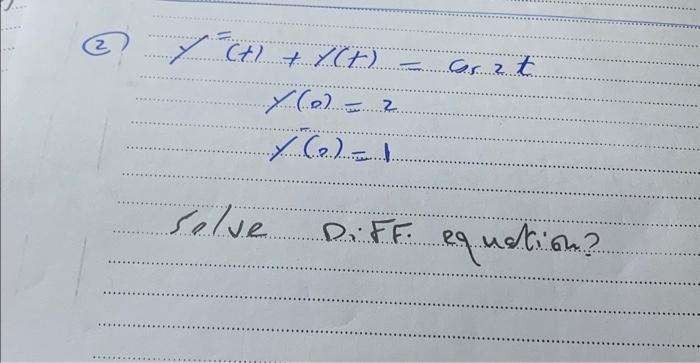 ② y̿(t) + y(t) = cos 2t
y(0) = 2
y̅(0) = 1
Solve DiFF. equation?